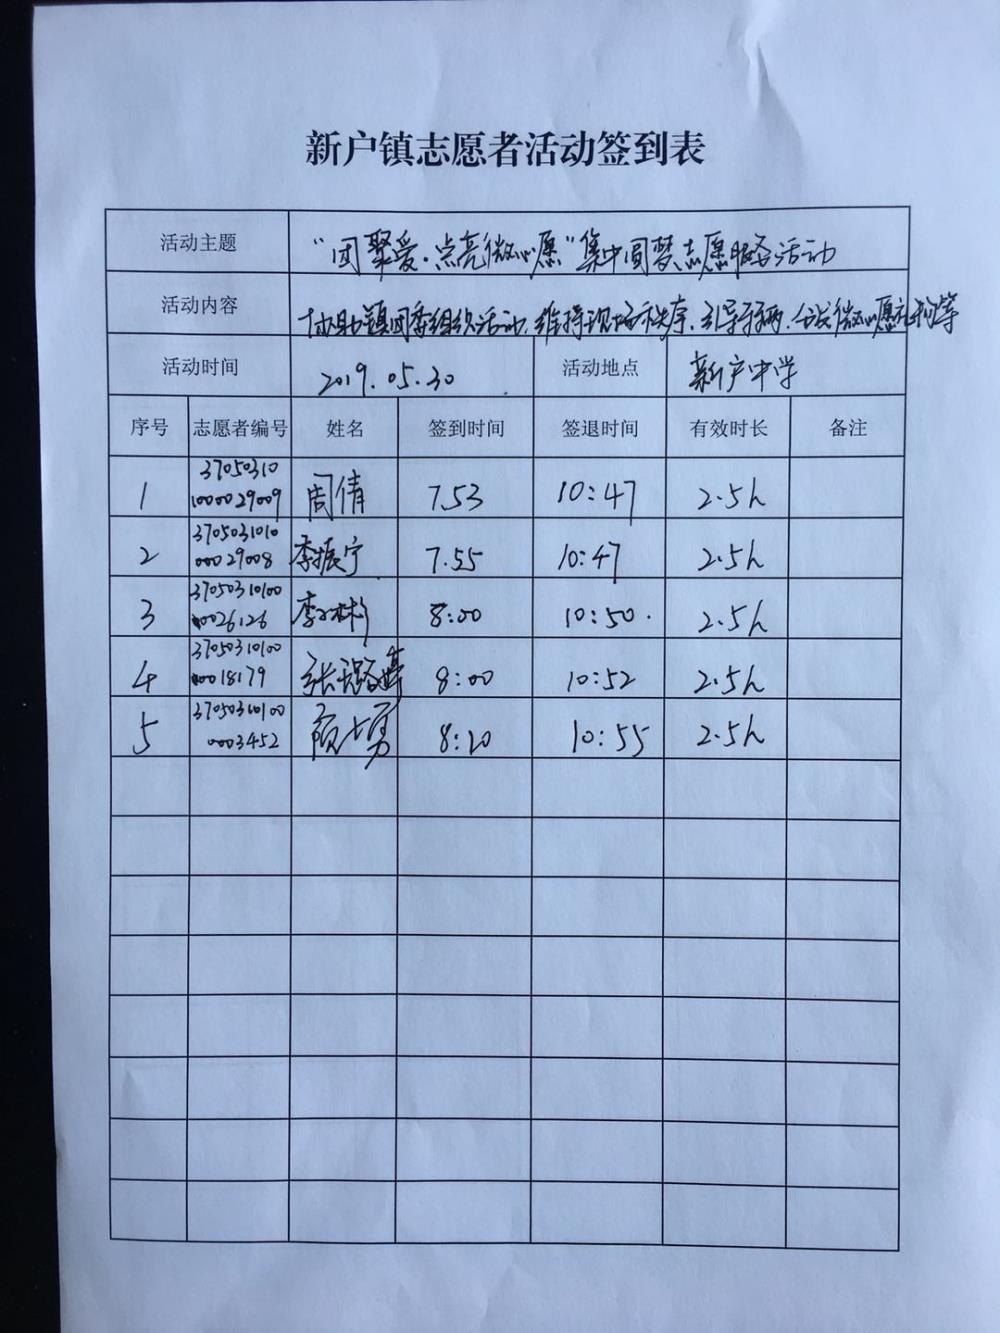 新户镇志愿者活动签到表
活动主题 "团聚爱·点亮微心愿"集中圆梦志愿服务活动
活动内容 协助镇团委组织活动,维持现场秩序,引导车辆,分发微心愿礼物等
活动时间 2019.05.30 活动地点 新户中学
序号 志愿者编号 姓名 签到时间 签退时间 有效时长 备注
37050310
1 1000029009 周倩 7.53 10:47 2.5h
3705031010
2 00029008 李振宁 7.55 10:47 2.5h
37050310100
3 0026126 李 彬 8:00 10:50. 2.5h
37050310100
4 0018179 张璐 8:00 10:52 2.5h
37050310100
5 0003452 勇 8:20 10:55 2.5h